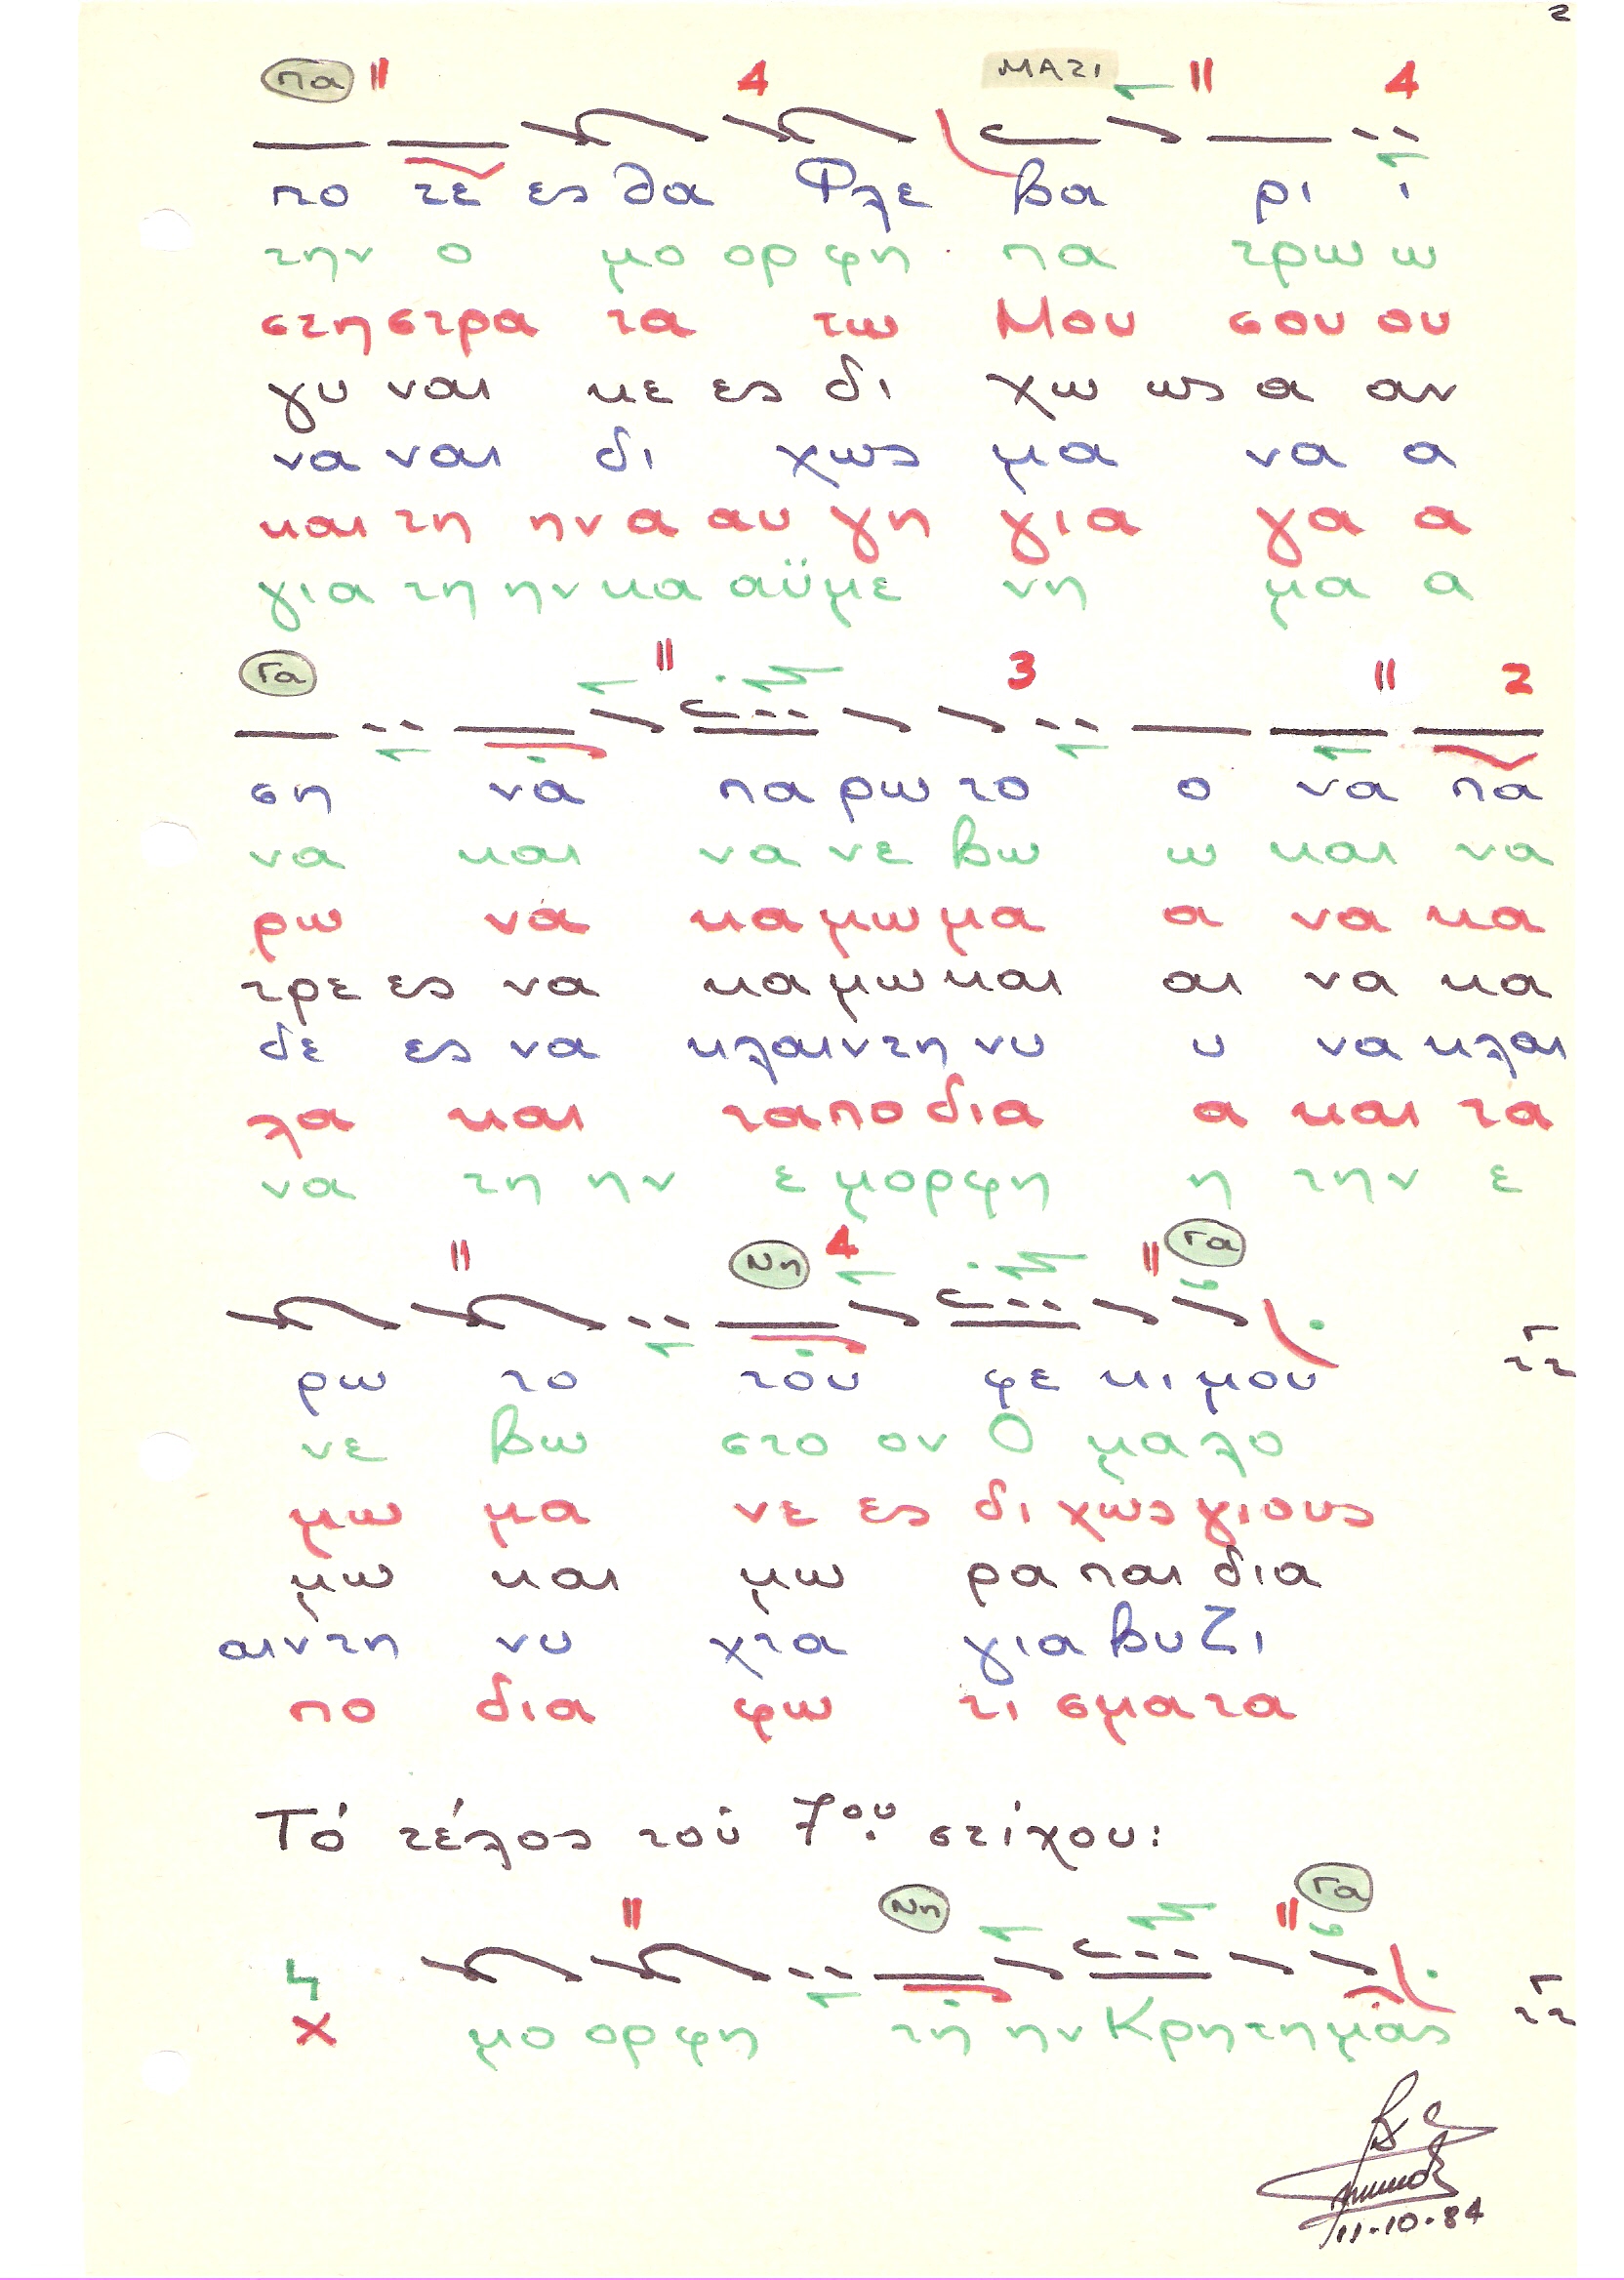 2
πα 4 ΜΑΖΙ 4
πο τε ες θα Φλε βα ρι ι
την ο μο ορ φη πα τρω ω
στη στρα τα τω Μου σου ου
γυ ναι κε ες δι χω ως α αν
να ναι δι χως μα να α
και τη ην α αυ γη για γα α
για τη ην κα αϋ με νη μα α
Γα 3 2
ση να πα ρω το ο να πα
να και να νε βω ω και να
ρω να κα μω μα α να κα
τρε ες να κα μω και αι να κα
δε ες να κλαιν τη νυ υ να κλαι
λα και τα πο δια α και τα
να τη ην ε μορ φη η την ε
Νη 4 Γα
ρω το του φε κι μου
νε βω στο ον Ο μα λο
μω μα νε ες δι χως γιους
μω και μω ρα παι δια
αιν τη νυ χτα για βυ ζι
πο δια φω τι σμα τα
Τό τέλος τού 7ου στίχου:
Νη Γα
μο ορ φη τη ην Κρη τη μας
11-10-84